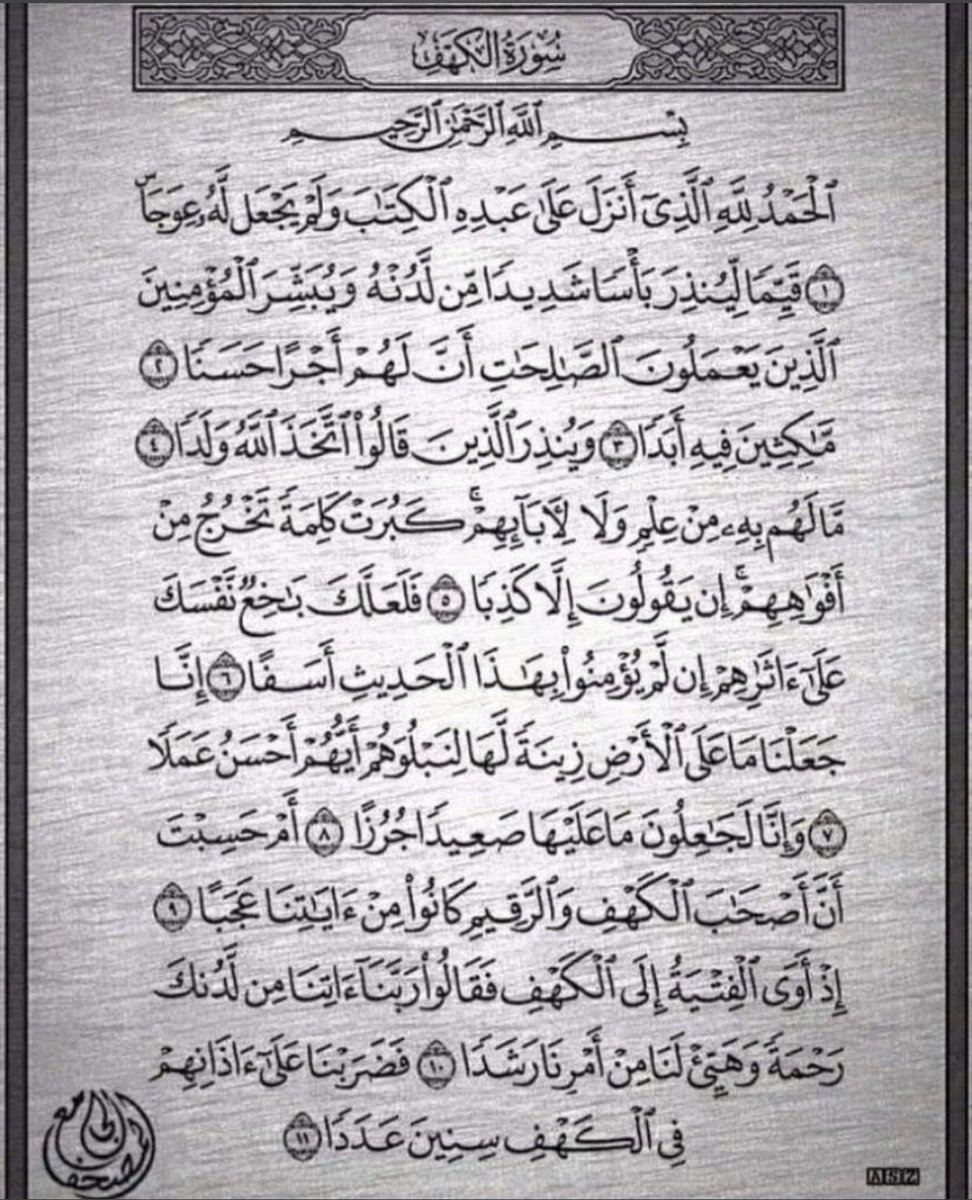 سُورَةُ الكَهْفِ
بِسْمِ ٱللَّهِ ٱلرَّحْمَٰنِ ٱلرَّحِيمِ
ٱلْحَمْدُ لِلَّهِ ٱلَّذِىٓ أَنزَلَ عَلَىٰ عَبْدِهِ ٱلْكِتَٰبَ وَلَمْ يَجْعَل لَّهُۥ عِوَجَاۜ
١ قَيِّمًا لِّيُنذِرَ بَأْسًا شَدِيدًا مِّن لَّدُنْهُ وَيُبَشِّرَ ٱلْمُؤْمِنِينَ
ٱلَّذِينَ يَعْمَلُونَ ٱلصَّٰلِحَٰتِ أَنَّ لَهُمْ أَجْرًا حَسَنًا ٢
مَّٰكِثِينَ فِيهِ أَبَدًا ٣ وَيُنذِرَ ٱلَّذِينَ قَالُوا۟ ٱتَّخَذَ ٱللَّهُ وَلَدًا ٤
مَّا لَهُم بِهِۦ مِنْ عِلْمٍ وَلَا لِءَابَآئِهِمْ ۚ كَبُرَتْ كَلِمَةً تَخْرُجُ مِنْ
أَفْوَٰهِهِمْ ۚ إِن يَقُولُونَ إِلَّا كَذِبًا ٥ فَلَعَلَّكَ بَٰخِعٌ نَّفْسَكَ
عَلَىٰٓ ءَاثَٰرِهِمْ إِن لَّمْ يُؤْمِنُوا۟ بِهَٰذَا ٱلْحَدِيثِ أَسَفًا ٦ إِنَّا
جَعَلْنَا مَا عَلَى ٱلْأَرْضِ زِينَةً لَّهَا لِنَبْلُوَهُمْ أَيُّهُمْ أَحْسَنُ عَمَلًا
٧ وَإِنَّا لَجَٰعِلُونَ مَا عَلَيْهَا صَعِيدًا جُرُزًا ٨ أَمْ حَسِبْتَ
أَنَّ أَصْحَٰبَ ٱلْكَهْفِ وَٱلرَّقِيمِ كَانُوا۟ مِنْ ءَايَٰتِنَا عَجَبًا ٩
إِذْ أَوَى ٱلْفِتْيَةُ إِلَى ٱلْكَهْفِ فَقَالُوا۟ رَبَّنَآ ءَاتِنَا مِن لَّدُنكَ
رَحْمَةً وَهَيِّئْ لَنَا مِنْ أَمْرِنَا رَشَدًا ١٠ فَضَرَبْنَا عَلَىٰٓ ءَاذَانِهِمْ
فِى ٱلْكَهْفِ سِنِينَ عَدَدًا ١١
ASZ